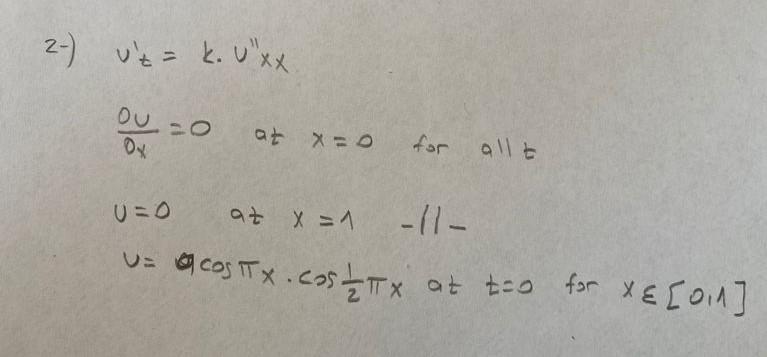 2-) u't = k. u''xx
∂u/∂x = 0 at x = 0 for all t
u = 0 at x = 1 -//-
u = a cos πx . cos 1/2 πx at t=0 for x ε [0,1]